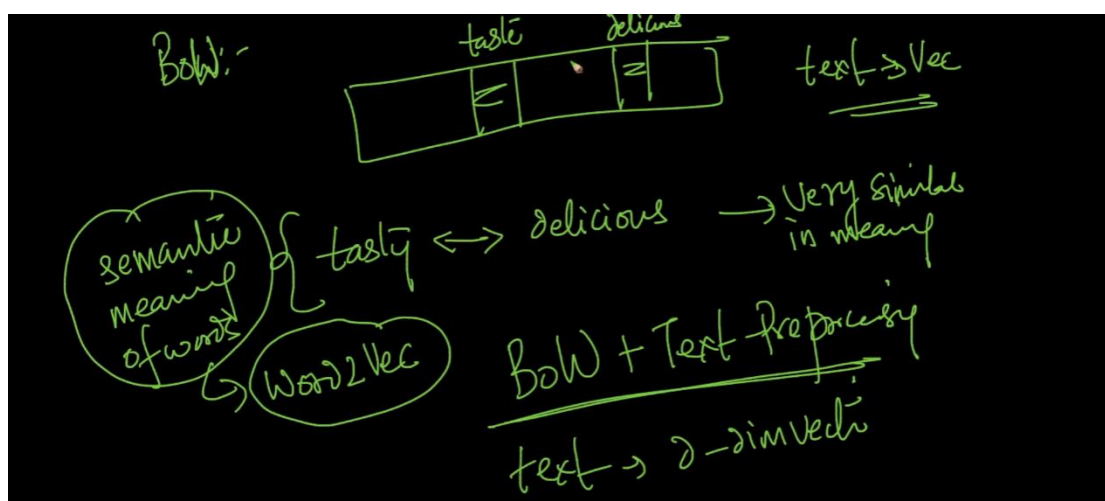 BoW:-
taste
delicious
text → Vec
semantic
meaning
of words
tasty ↔ delicious → Very similar
in meaning
Word2Vec
BoW + Text Preprocessing
text → d-dim vector